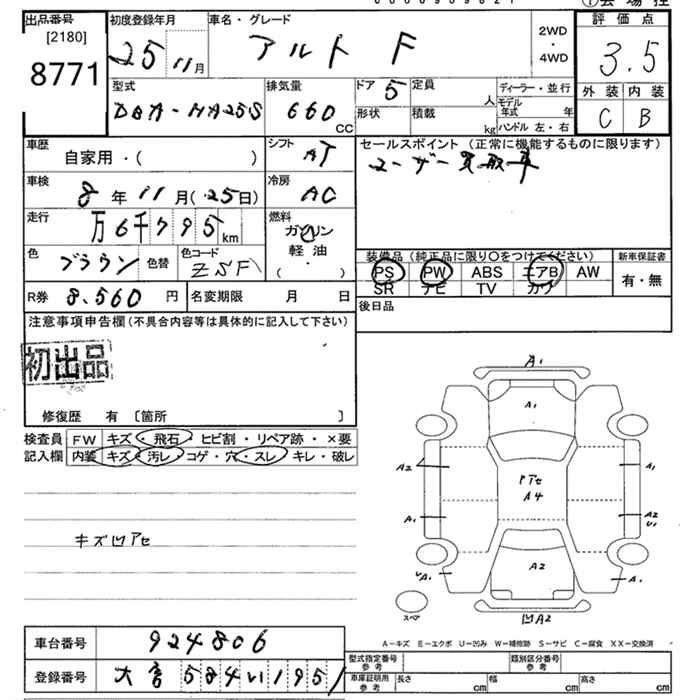 出品番号 [2180] 8771
初度登録年月 25 11月
車名・グレード アルト F
2WD・4WD
評価点 3.5
外装 内装
C B
型式 DBA-HA25S
排気量 660 CC
ドア 5 定員 人
形状 積載 kg
ディーラー・並行
モデル年式 年
ハンドル 左・右
車歴 自家用・( )
シフト AT
セールスポイント (正常に機能するものに限ります)
ユーザー買取車
車検 8年11月(25日)
冷房 AC
走行 万6千795km
燃料 ガソリン 軽油 ( )
色 ブラウン 色替 色コード ZSF
装備品 (純正品に限り○をつけてください) 新車保証書
PS PW ABS エアB AW 有・無
SR ナビ TV カワ
R券 8,560円 名変期限 月 日
後日品
注意事項申告欄 (不具合内容等は具体的に記入して下さい)
初出品
修復歴 有 〔箇所 〕
検査員記入欄 FW キズ・飛石・ヒビ割・リペア跡・×要
内装 キズ・汚レ・コゲ・穴・スレ・キレ・破レ
キズ凹アセ
A1
A1
A2 A1
アセ
A4
A1 A2
U1
A2
UA1 A1
スペア
凹A2
A-キズ E-エクボ U-凹み W-補修跡 S-サビ C-腐食 XX-交換済
車台番号 924806
型式指定番号 参考 類別区分番号 参考
登録番号 大宮 584 い 1951
車庫証明用 参考 長さ cm 幅 cm 高さ cm